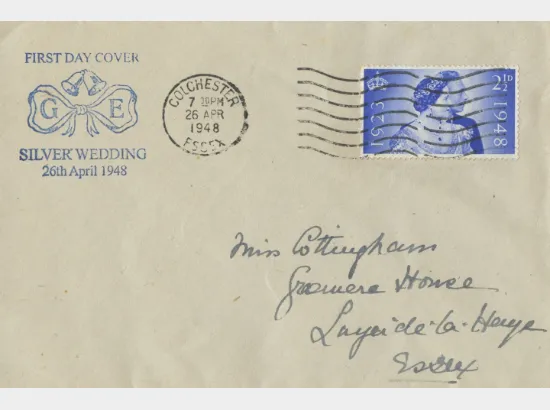 FIRST DAY COVER
G E
SILVER WEDDING
26th April 1948
COLCHESTER
7 PM
26 APR
1948
ESSEX
1923
2½D
1948
Miss Cottingham
House
Layer-de-la-Haye
Essex